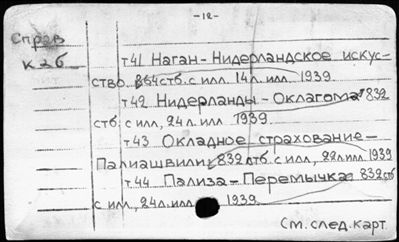 -12-
Справ
К 26
т.41 Наган-Нидерландское искус-
ство. 864 стб. с илл. 14 л. илл. 1939.
т.42 Нидерланды-Оклагома 832
стб. с илл, 24 л. илл 1939.
т.43 Окладное страхование-
Палиашвили 832 стб. с илл, 22 л илл 1939
т.44 Пализа-Перемычка 832 стб
с илл, 24 л. илл 1939.
См. след. карт.